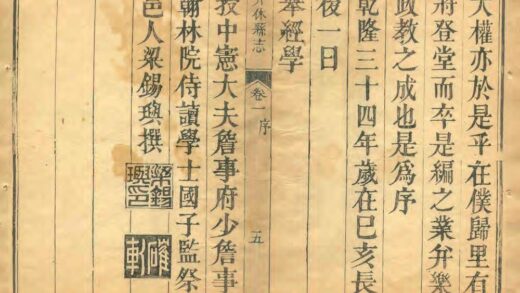 大權亦於是乎在僕歸里有
府登堂而卒是編之業弁樂
政教之成也是爲序
乾隆三十四年歲在巳亥長
後一日
舉經學
休縣志
卷一 序
五
授中憲大夫詹事府少詹事
翰林院侍讀學士國子監祭
邑人梁錫璵撰
梁錫璵印
確軒